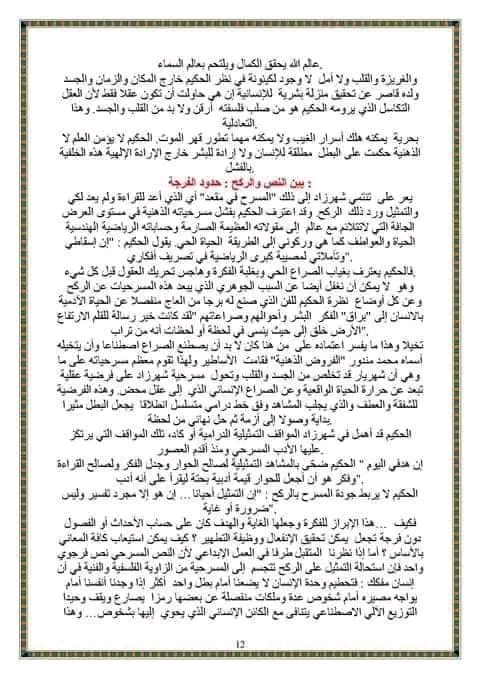 عالم الله يحقق الكمال ويلتحم بعالم السماء.
والغريزة والقلب ولا أمل لا وجود لكينونة في نظر الحكيم خارج المكان والزمان والجسد
ولده قاصر عن تحقيق منزلة بشرية للإنسانية إن هي حاولت أن تكون عقلا فقط لأن العقل
التكاسل الذي يرومه الحكيم هو من صلب فلسفته أرقن ولا بد من القلب والجسد. وهذا
التعادلية.
بحرية يمكنه هلك أسرار الغيب ولا يمكنه مهما تطور قهر الموت. الحكيم لا يؤمن العلم لا
الذهنية حكمت على البطل مطلقة للإنسان ولا إرادة للبشر خارج الإرادة الإلهية هذه الخلفية
بالفشل.
بين النص والركح : حدود الفرجة :
يعر على تنتمي شهرزاد إلى ذلك "المسرح في مقعد" أي الذي أعد للقراءة ولم يعد لكي
والتمثيل ورد ذلك الركح وقد اعترف الحكيم بفشل مسرحياته الذهنية في مستوى العرض
الجافة التي لاتتلائم مع عالم إلى مقولاته العظيمة الصارمة وحساباته الرياضية الهندسية
الحياة والعواطف كما هي وركوني إلى الطريقة الحياة الحي. يقول الحكيم : "إن إسقاطي
وتأملاتي لمصيبة كبرى الرياضية في تصريف أفكاري".
فالحكيم يعترف بغياب الصراع الحي وبغلبة الفكرة وهاجس تحريك العقول قبل كل شيء.
وهو لا يمكن أن نغفل أيضا عن السبب الجوهري الذي يبعد هذه المسرحيات عن الركح
وعن كل أوضاع نظرة الحكيم للفن الذي صنع له برجا من العاج منفصلا عن الحياة الآدمية
بالانسان إلى "براق" الفكر البشر وأحوالهم وصراعاتهم "لقد كانت خير رسالة للقلم الارتفاع
الأرض خلق إلى حيث ينسى في لحظة أو لحظات أنه من تراب".
تخيلا وهذا ما يفسر اعتماده على من هنا كان لا بد أن يصطنع الصراع اصطناعا وأن يتخيله
أسماه محمد مندور "الفروض الذهنية" فقامت الأساطير ولهذا تقوم معظم مسرحياته على ما
وهي أن شهريار قد تخلص من الجسد والقلب وتحول مسرحية شهرزاد على فرضية عقلية
تبعد عن حرارة الحياة الواقعية وعن الصراع الإنساني الذي إلى عقل محض. وهذه الفرضية
للشفقة والعطف والذي يجلب المشاهد وفق خط درامي متسلسل انطلاقا يجعل البطل مثيرا
بداية وصولا إلى أزمة ثم حل نهائي من لحظة.
الحكيم قد أهمل في شهرزاد المواقف التمثيلية الدرامية أو كاد، تلك المواقف التي يرتكز
عليها الأدب المسرحي ومنذ أقدم العصور.
إن هدفي اليوم " الحكيم ضحّى بالمشاهد التمثيلية لصالح الحوار وجدل الفكر ولصالح القراءة
وفكر هو أن أجعل للحوار قيمة أدبية بحتة ليقرأ على أنه أدب".
الحكيم لا يربط جودة المسرح بالركح : "إن التمثيل أحيانا... إن هو إلا مجرد تفسير وليس
ضرورة أو غاية".
فكيف ...هذا الإبراز للفكرة وجعلها الغاية والهدف كان على حساب الأحداث أو الفصول
دون فرجة تجعل يمكن تحقيق الإنفعال ووظيفة التطهير ؟ كيف يمكن استيعاب كافة المعاني
بالأساس ؟ أما إذا نظرنا المتقبل طرفا في العمل الإبداعي لأن النص المسرحي نص فرجوي
واحد فإن استحالة التمثيل على الركح تتجسم إلى المسرحية من الزاوية الفلسفية والفنية في أن
إنسان مفكك : فتحطيم وحدة الإنسان لا يضعنا أمام بطل واحد أكثر إذا وجدنا أنفسنا أمام
يواجه مصيره أمام شخوص عدة وملكات منفصلة عن بعضها رمزا يصارع ويقف وحيدا
التوزيع الآلي الاصطناعي يتنافى مع الكائن الإنساني الذي يحوي إليها بشخوص... وهذا
12